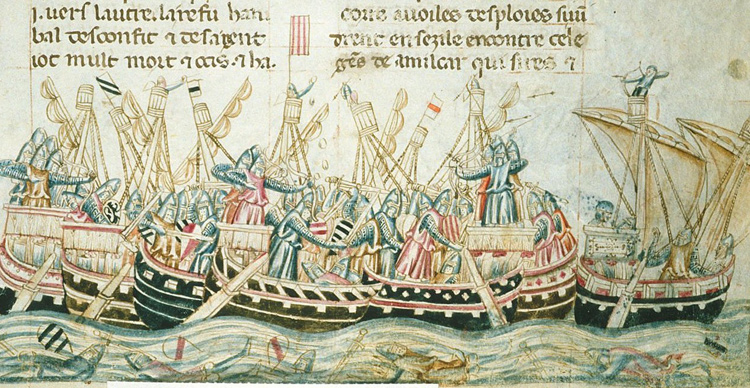 j. uers lautre. la refu han
bal desconfit ⁊ de sa gent
iot mult mort ⁊ ocis. ⁊ ha.
corre a uoiles desploies si uin
drent en sezile encontre cele
gēs de amilcar qui sires ⁊